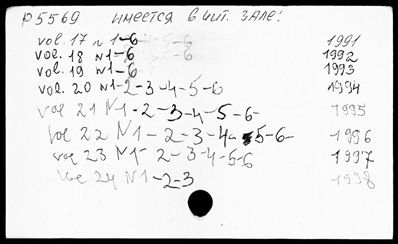 P5569 имеется в чит. зале:
vol. 17 N 1-6 1991
vol. 18 N1-6 1992
vol. 19 N1-6 1993
vol. 20 N1-2-3-4-5-6 1994
vol 21 N1-2-3-4-5-6- 1995
vol 22 N1-2-3-4-5-6- 1996
vol 23 N1-2-3-4-5-6 1997
vol 24 N1-2-3 1998